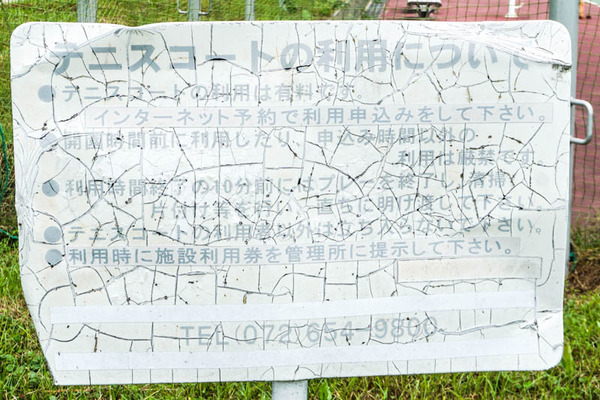 テニスコートの利用について
●テニスコートの利用は有料です。
インターネット予約で利用申込みをして下さい。
●開園時間前に利用したり、申込み時間以外の
利用は厳禁です
●利用時間終了の10分前にはプレーを終了し、清掃
片付け等を行い、直ちに明け渡して下さい。
●テニスコートの利用者以外は立ち入らないで下さい。
●利用時に施設利用券を管理所に提示して下さい。
TEL(072)654-9800